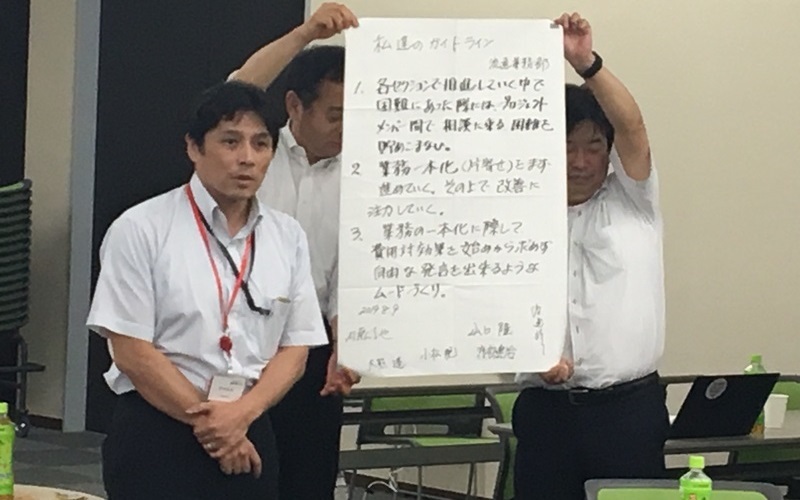 私達のガイドライン
流通業務部
1. 各セクションで推進していく中で
困難にあった際には、プロジェクト
メンバー間で相談に乗る 困難を
貯めこまない。
2. 業務一本化(片寄せ)をまず
進めていく。その上で改善に
注力していく。
3. 業務の一本化に際して
費用対効果を始めから求めず
自由な発言を出来るような
ムードづくり。
2019.8.9
山口
小松